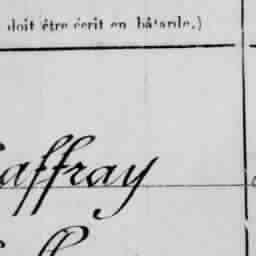 doit être écrit en bâtarde.)
affray